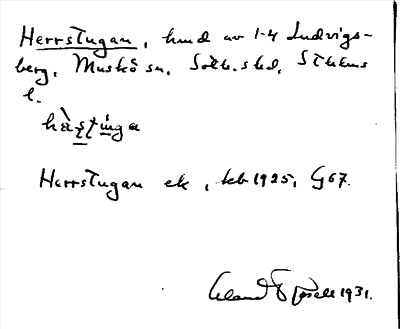 Herrstugan, hmd av 1-4 Ludvigs-
berg, Muskö sn, Soth. skd, Sthlms
l.
hàştinga
Herrstugan ek, kb 1925, G 67.
1931.